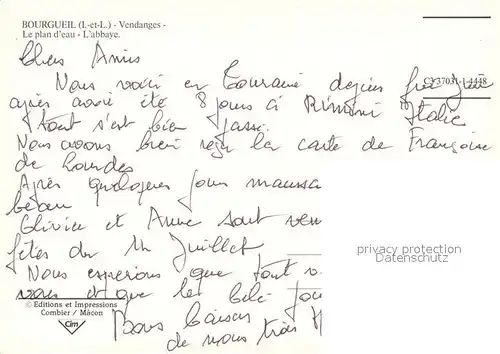 BOURGUEIL (I.-et-L.) - Vendanges -
Le plan d'eau - L'abbaye.
Chers Amis
CY37031-1-4448
Nous voici en Touraine depuis fin juin
après avoir été 8 jours à Rimini Italie
Tout s'est bien passé.
Nous avons bien reçu la carte de Françoise
de Lourdes
Après quelques jours maussa
beau
Olivier et Anne sont ven
fêtes du 14 Juillet
privacy protection
Datenschutz
Nous espérons que tout v
vous et que les
© Editions et Impressions
Combier / Mâcon
Cim
Bons baisers
de nous trois